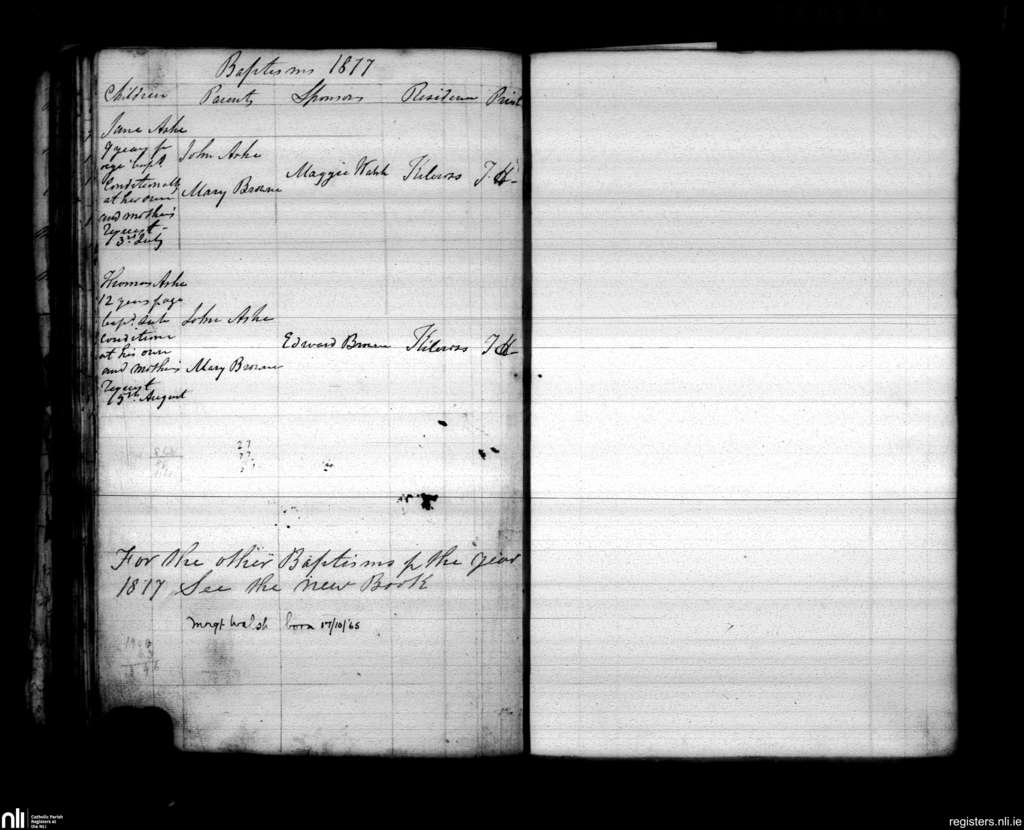 Baptisms 1877
Children Parents Sponsors Residence Priest
Jane Ashe
9 years of
age bapt
Conditionally
at her own
and mother's
request
3rd July
John Ashe
Mary Browne
Maggie Walsh Kilcross J. H
Thomas Ashe
12 years of age
bapt. sub
conditione
at his own
and mother's
request
15th August
John Ashe
Mary Browne
Edward Browne Kilcross J H
27
For the other Baptisms of the year
1877 See the new Book
Margt Walsh born 17/10/65
nli Catholic Parish
Registers at
the NLI
registers.nli.ie